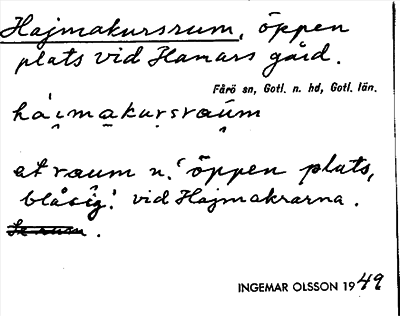 Hajmakursrum, öppen
plats vid Hamars gård.
Fårö sn, Gotl. n. hd, Gotl. län.
hái̯makursrau̯m
et raum n. 'öppen plats,
blåsig'. vid Hajmakrarna.
INGEMAR OLSSON 1949